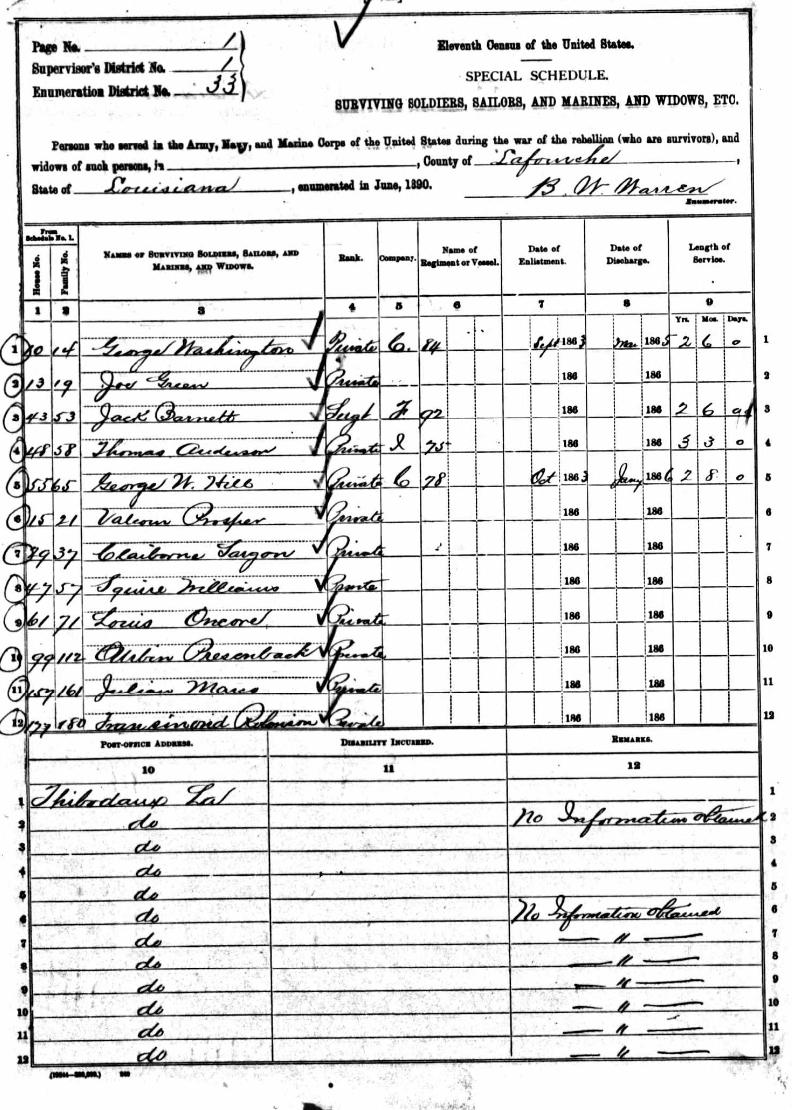 Page No. 1
Supervisor's District No. 1
Enumeration District No. 33
Eleventh Census of the United States.
SPECIAL SCHEDULE.
SURVIVING SOLDIERS, SAILORS, AND MARINES, AND WIDOWS, ETC.
Persons who served in the Army, Navy, and Marine Corps of the United States during the war of the rebellion (who are survivors), and
widows of such persons, in , County of Lafourche ,
State of Louisiana , enumerated in June, 1890. B. W. Warren
Enumerator.
From Schedule No. 1.
House No. Family No. NAMES OF SURVIVING SOLDIERS, SAILORS, AND MARINES, AND WIDOWS. Rank. Company. Name of Regiment or Vessel. Date of Enlistment. Date of Discharge. Length of Service.
1 2 3 4 5 6 7 8 9
Yrs. Mos. Days.
1 10 14 George Washington Private C. 84 Sept 1863 Mar 1865 2 6 0 1
2 13 19 Joe Green Private 186 186 2
3 43 53 Jack Barnett Sergt F 92 186 186 2 6 3
4 48 58 Thomas Anderson Private I 75 186 186 3 3 0 4
5 55 65 George W. Hill Private C 78 Oct 1863 Jany 1866 2 8 0 5
6 15 21 Valcour Prosper Private 186 186 6
7 29 37 Claiborne Private 186 186 7
8 47 57 Squire Williams Private 186 186 8
9 61 71 Louis Oncore Private 186 186 9
10 99 112 Presenback Private 186 186 10
11 157 161 Julian Private 186 186 11
12 177 180 Robinson Private 186 186 12
POST-OFFICE ADDRESS. DISABILITY INCURRED. REMARKS.
10 11 12
1 Thibodaux La 1
2 do No Information obtained 2
3 do 3
4 do 4
5 do 5
6 do No Information obtained 6
7 do — " — 7
8 do — " — 8
9 do — " — 9
10 do — " — 10
11 do — " — 11
12 do — " — 12